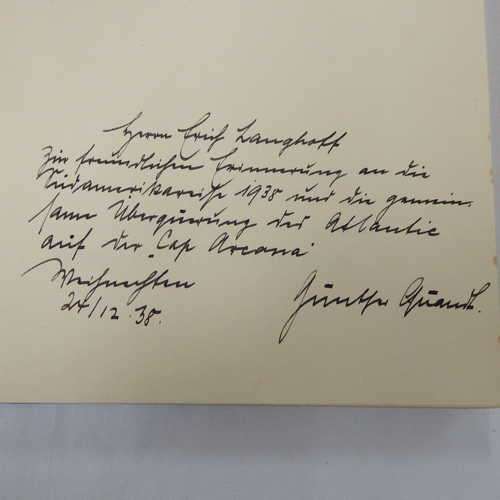 Herrn Erich Langhoff
Zur freundlichen Erinnerung an die
Südamerikareise 1938 und die gemein-
same Überquerung des Atlantic
auf der „Cap Arcona"
Weihnachten
24/12.38.
Günther Quandt.